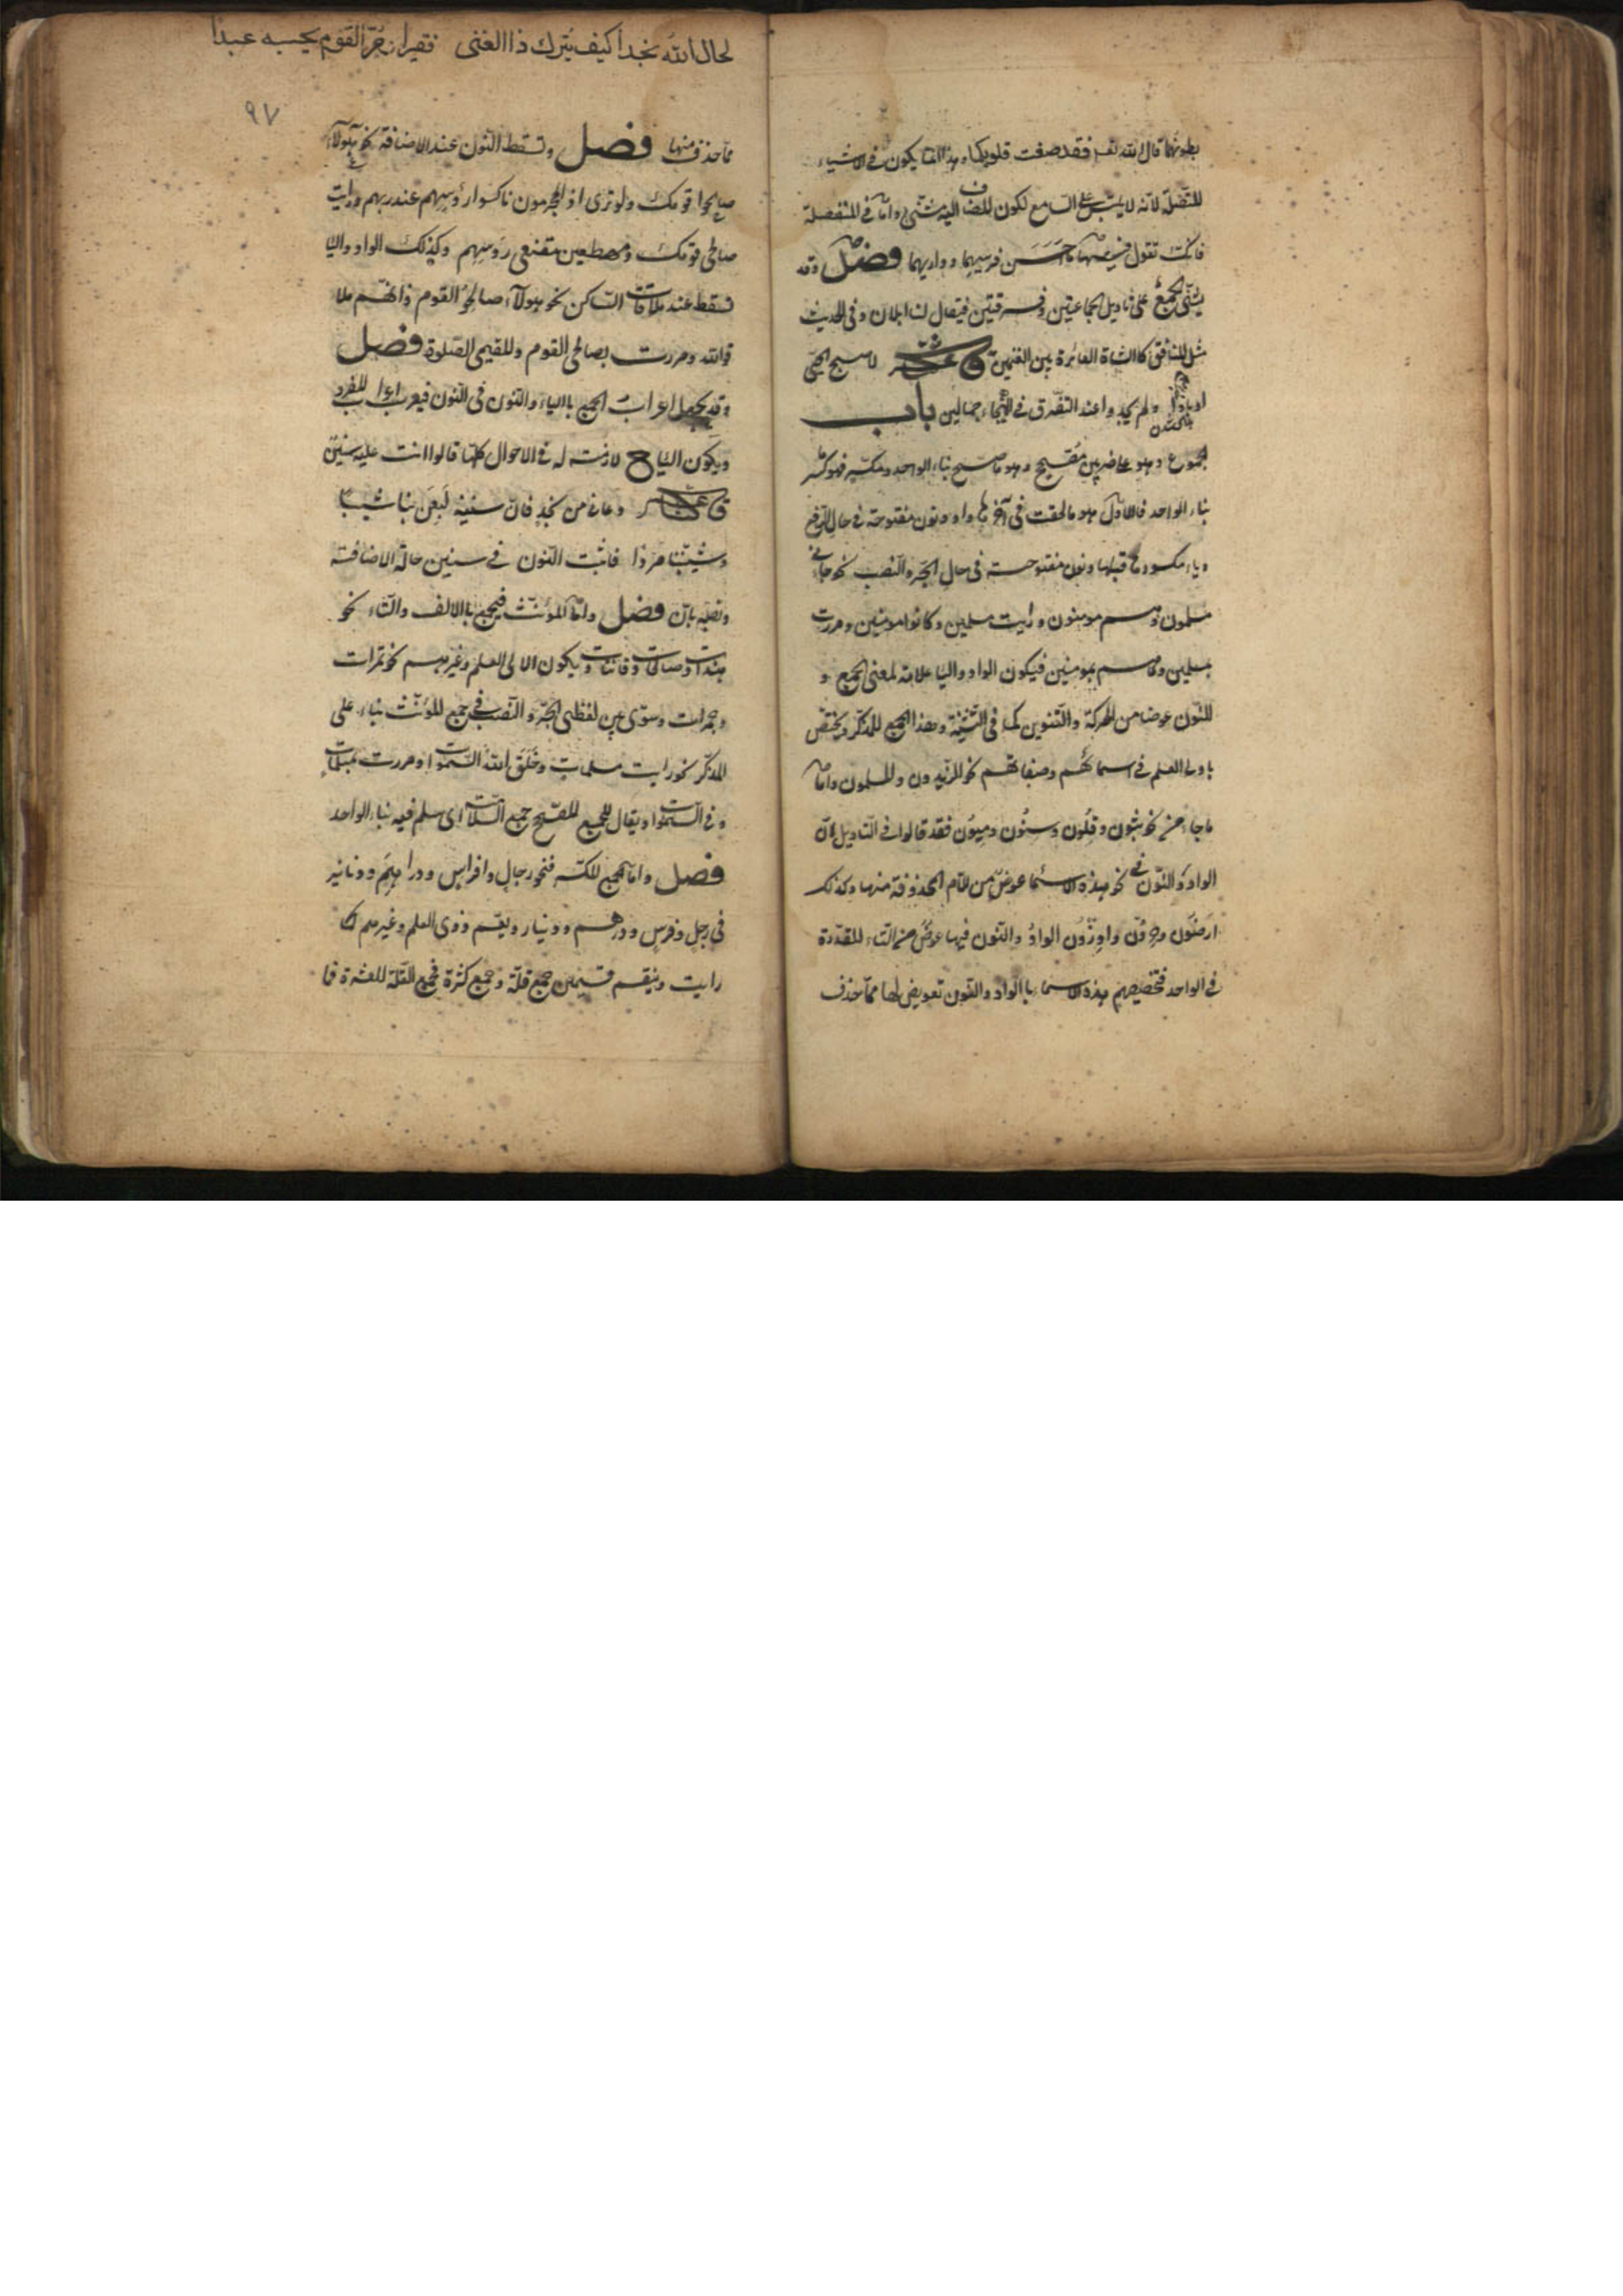 بطونهما قال الله تعـ فقد صغت قلوبكما وهذا انما يكون في الاشياء
المتصلة لانه لا يلتبس على السامع لكون المضاف اليه مثنى واما في المنفصلة
فانك تقول قميصهما ما احسن فرسيهما وداريهما فصل وقد
يثنى الجمع على تاويل الجماعتين وفرقتين فيقال لنا ابلان وفي الحديث
مثل المنافق كالشاة العائرة بين الغنمين قال شاعر لاصبح الحي
اوبادا ولم يجدوا عند التفرق في الهيجاء جمالين باب
المجموع وهو على ضربين مصحح وهو ما صح بناء الواحد ومكسر فهو كسر
بناء الواحد فالاول هو ما لحقت في آخرها واو ونون مفتوحة في حال الرفع
وياء مكسور ما قبلها ونون مفتوحة في حال الجر والنصب نحو جائني
مسلمون وهم مومنون ورايت مسلمين وكانوا مومنين ومررت
بمسلمين وما هم بمومنين فيكون الواو واليا علامة لمعنى الجمع و
النون عوضا من الحركة والتنوين كما في التثنية وهذا الجمع للمذكر ويختص
باولي العلم في اسمائهم وصفاتهم نحو الزيدون والمسلمون واما
ما جاء من نحو ثبون وقلون وسنون ومئون فقد قالوا في التاويل ان
الواو والنون في نحو هذه الاسما عوض من اللام المحذوفة منها وكذلك
ارضون واوزون الواو والنون فيها عوض من التاء المقدرة
في الواحد فتخصيصهم هذه الاسماء باالواو والنون تعويض لها مما حذف
لحا الله نجدا كيف يترك ذا الغنى فقيرا وحر القوم يحسبه عبدا
٩٧
مما حذف منها فصل وتسقط النون عند الاضافة نحو هولاء
صالحوا قومك ولو ترى اذ المجرمون ناكسوا رؤسهم عند ربهم ورايت
صالحي قومك ومهطعين مقنعي رؤسهم وكذلك الواو واليا
تسقط عند ملاقات الساكن نحو هولاء صالحو القوم وانهم ملا
قوالله ومررت بصالحي القوم والمقيمي الصلوة فصل
وقد يجعل اعراب الجمع باالياء والنون في النون فيعرب اعراب المفرد
ويكون الياء لازمة له في الاحوال كلها قالوا اتت عليه سنين
قال شاعر دعاني من نجد فان سنينه لعبن بنا شيبا
وشيبننا مردا فاثبت النون في سنين حالة الاضافة
ونصبه بان فصل واما المؤنث فيجمع باالالف والتاء نحو
هندات وصالحات وقانتات ويكون لاولى العلم وغيرهم نحو تمرات
وجمرات وسوى بين لفظي الجر والنصب في جمع المؤنث بناء على
المذكر نحو رايت مسلمات وخلق الله السموات ومررت بمسلمات
وفي السموات ويقال للجمع المصحح جمع السلامة اى سلم فيه بناء الواحد
فصل واما الجمع المكسر فنحو رجال وافراس ودراهم ودنانير
في رجل وفرس ودرهم ودينار ويعم ذوى العلم وغيرهم كما
رايت وينقسم قسمين جمع قلة وجمع كثرة فجمع القلة للعشرة فما